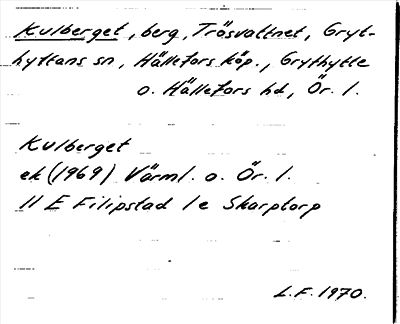 Kulberget, berg, Träsvattnet, Gryt-
hyttans sn, Hällefors köp., Grythytte
o. Hällefors hd, Ör. l.
Kulberget
ek (1969) Värml. o. Ör. l.
11 E Filipstad 1e Skarptorp
L.F. 1970.